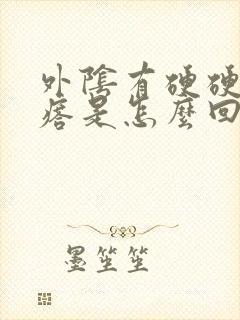 外陰有硬硬
痞是怎麼回
墨笙笙